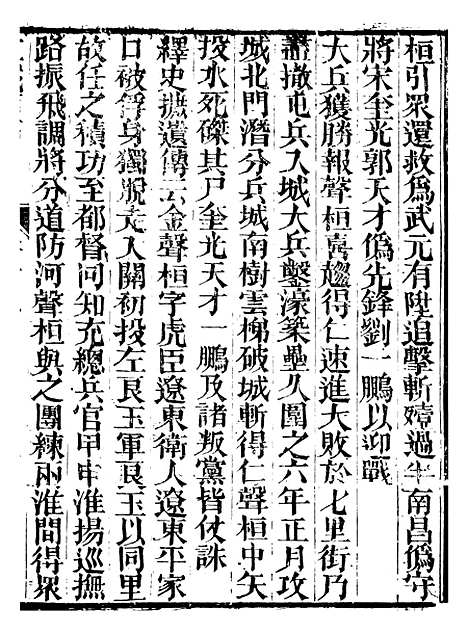 桓引眾還救為武元有陞追擊斬媂過半南昌偽守
將宋奎光郭天才偽先鋒劉一鵬以迎戰
大兵獲勝報聲桓喜趨得仁速進大敗於七里街乃
盡撤屯兵入城大兵鑿濠築壘久圍之六年正月攻
城北門潛分兵城南樹雲梯破城斬得仁聲桓中矢
投水死磔其尸奎光天才一鵬及諸叛黨皆伏誅
繹史摭遺傳云金聲桓字虎臣遼東衛人遼東平家
口被俘身獨脫走入關初投左良玉軍良玉以同里
故任之積功至都督同知充總兵官甲申淮揚巡撫
路振飛調將分道防河聲桓與之團練兩淮間得眾